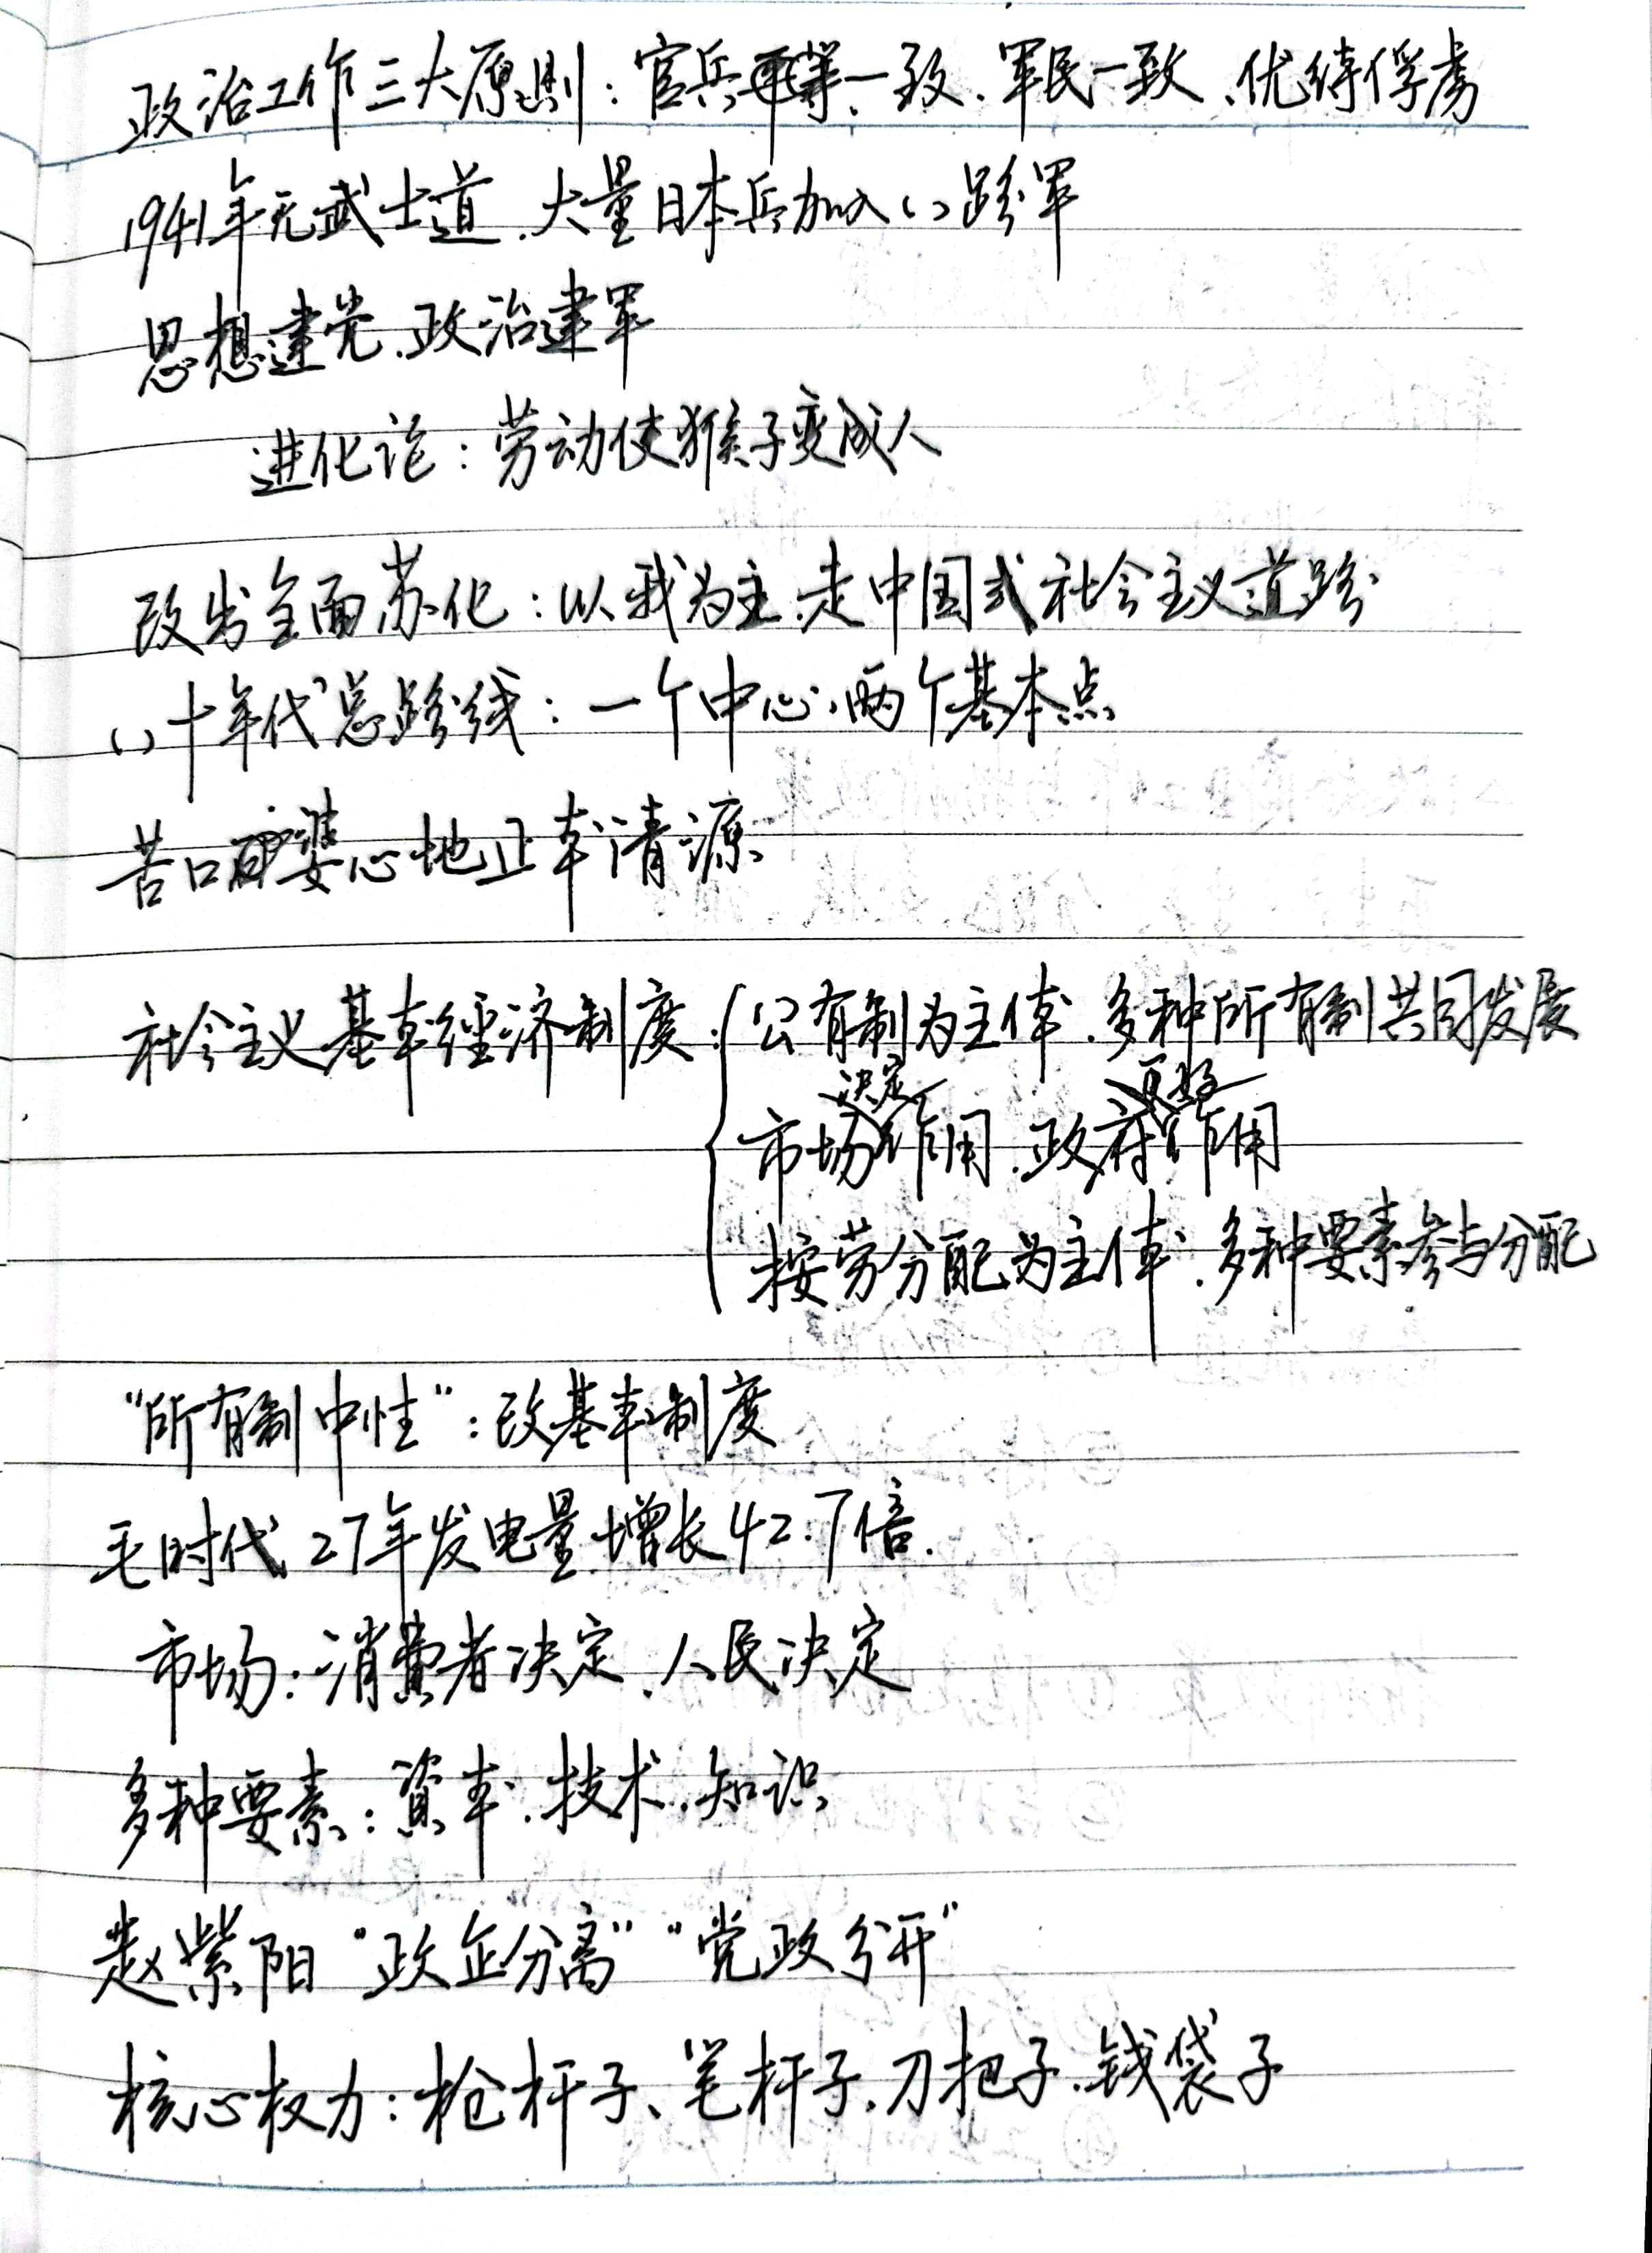 政治工作三大原则：官兵一致、军民一致、优待俘虏
1941年无武士道、大量日本兵加入八路军
思想建党、政治建军
进化论：劳动使猴子变成人
改出全面苏化：以我为主、走中国式社会主义道路
八十年代总路线：一个中心、两个基本点
苦口婆心地正本清源
社会主义基本经济制度：公有制为主体、多种所有制共同发展
市场决定作用、政府更好作用
按劳分配为主体、多种要素参与分配
“所有制中性”：改基本制度
毛时代27年发电量增长42.7倍.
市场：消费者决定、人民决定
多种要素：资本、技术、知识
赵紫阳“政企分离”“党政分开”
核心权力：枪杆子、笔杆子、刀把子、钱袋子